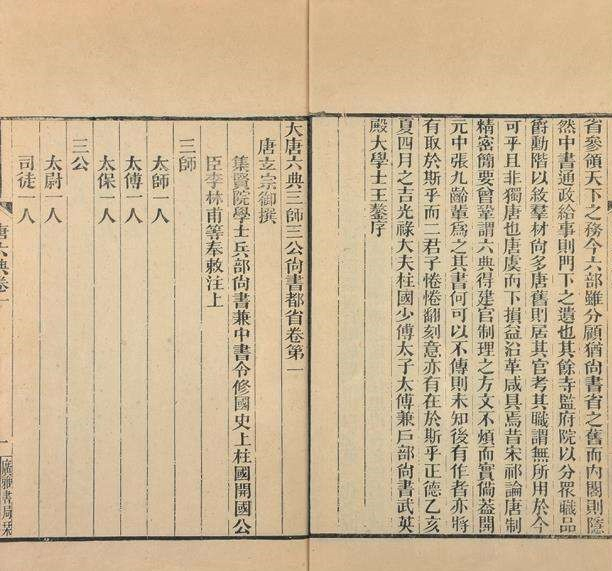 省參領天下之務今六部雖分顧猶尚書省之舊而內閣則隱
然中書通政給事則門下之遺也其餘寺監府院以分眾職品
爵勳階以敘羣材尚多唐舊則居其官考其職謂無所用於今
可乎且非獨唐也唐虞而下損益沿革咸具焉昔宋祁論唐制
精密簡要曾鞏謂六典得建官制理之方文不煩而實備葢開
元中張九齡輩爲之其書何可以不傳則未知後有作者亦將
有取於斯乎而二君子惓惓翻刻意亦有在於斯乎正德乙亥
夏四月之吉光祿大夫柱國少傅太子太傅兼戶部尚書武英
殿大學士王鏊序
大唐六典三師三公尚書都省卷第一
唐玄宗御撰
集賢院學士兵部尚書兼中書令修國史上柱國開國公
臣李林甫等奉敕注上
三師
太師一人
太傅一人
太保一人
三公
太尉一人
司徒一人
唐六典卷一
一
廣雅書局栞